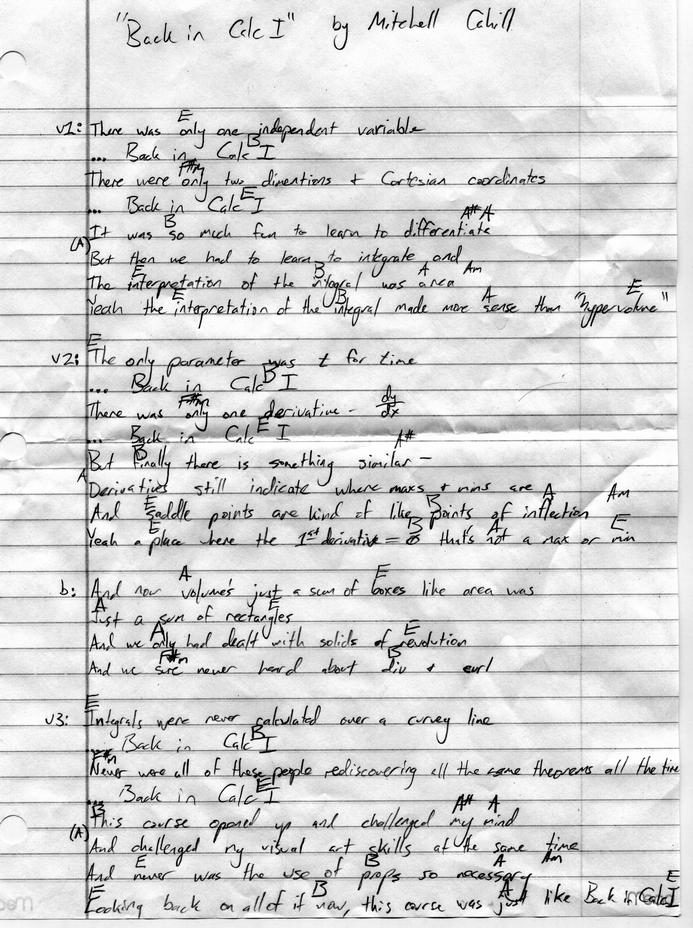 "Back in Calc I" by Mitchell Cahill
E
v1: There was only one independent variable
B
... Back in Calc I
F#m
There were only two dimentions + Cartesian coordinates
E
... Back in Calc I
B A# A
It was so much fun to learn to differentiate
(A)
But then we had to learn to integrate and
E B A Am
The interpretation of the integral was area
E B A E
Yeah the interpretation of the integral made more sense than "hypervolume"
E
v2: The only parameter was t for time
B
... Back in Calc I
F#m
There was only one derivative - dy/dx
E
... Back in Calc I
B A#
But finally there is something similar -
A
Derivatives still indicate where maxs + mins are
E B A Am
And saddle points are kind of like points of inflection
E B A E
Yeah a place where the 1st derivative = 0 that's not a max or min
A E
b: And now volume's just a sum of boxes like area was
A E
Just a sum of rectangles
A E
And we only had dealt with solids of revolution
F#m B
And we sure never heard about div + curl
E
v3: Integrals were never calculated over a curvey line
B
... Back in Calc I
F#m
Never were all of these people rediscovering all the same theorems all the time
E
... Back in Calc I
B A# A
This course opened up and challenged my mind
(A)
And challenged my visual art skills at the same time
E B A Am
And never was the use of props so necessary
E B A E
Looking back on all of it now, this course was just like Back in Calc I